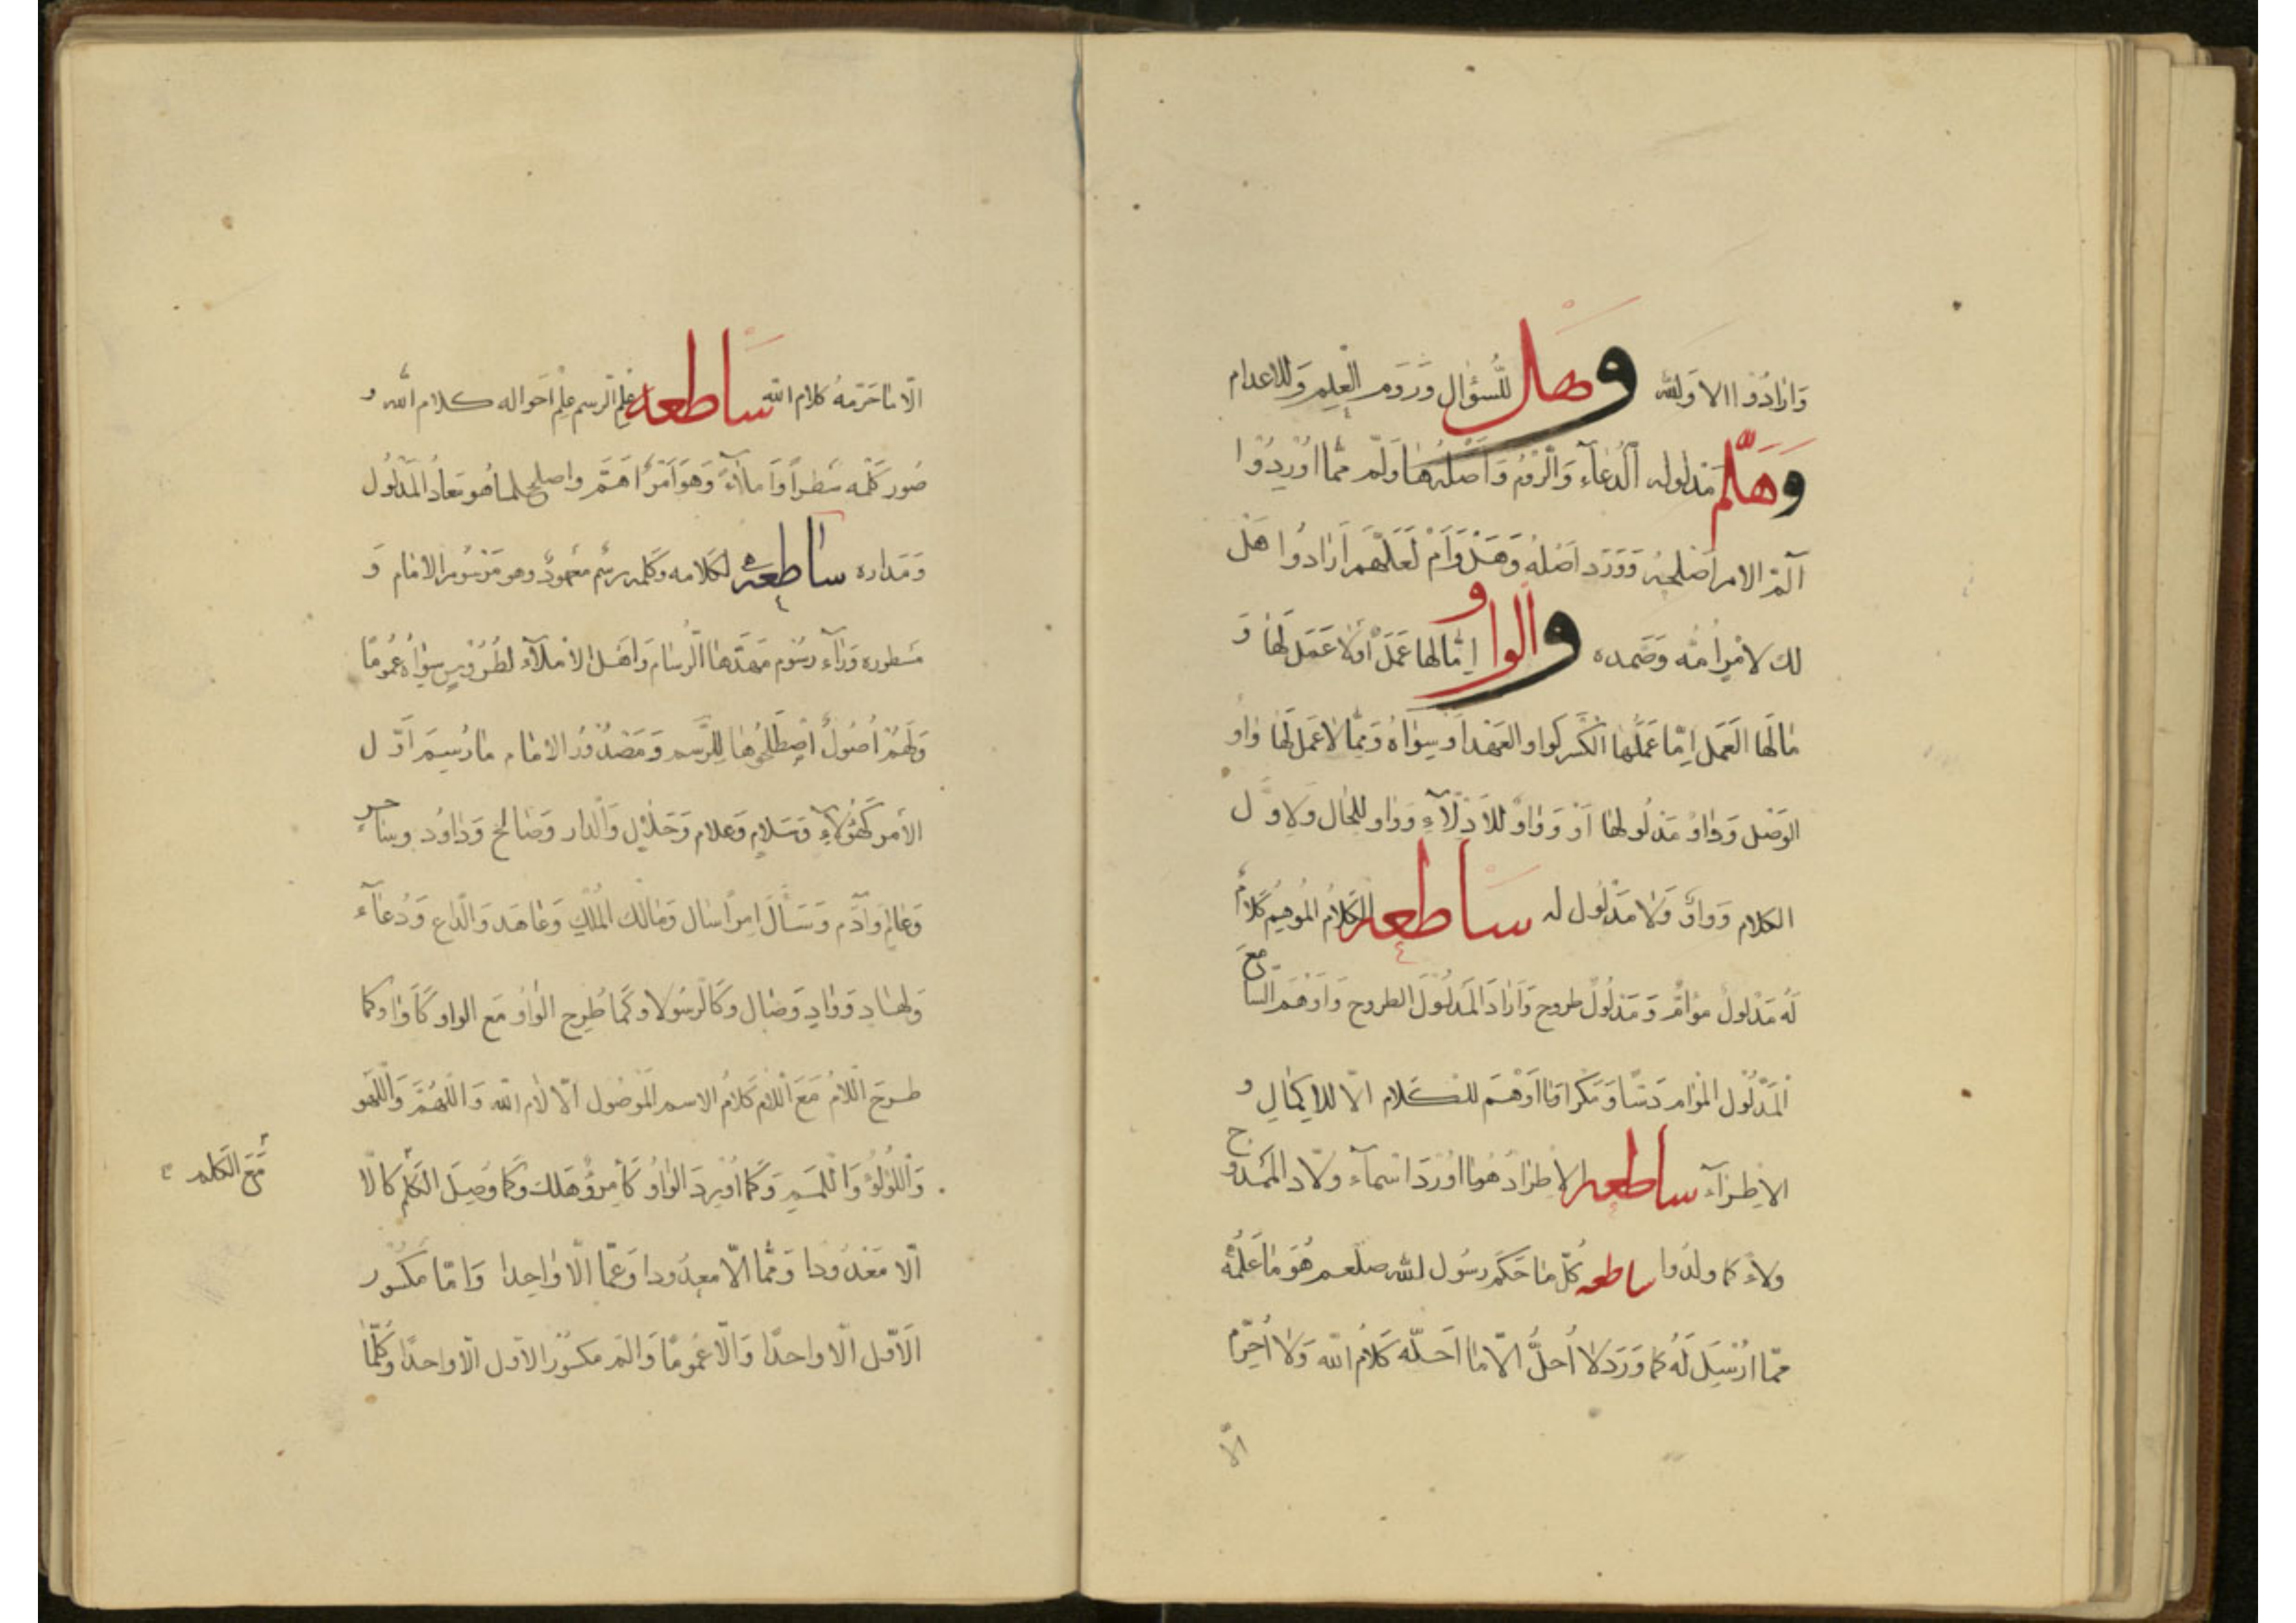 وَارَادُوْا الا وَلله وهل للسُّؤال وَرَوَم العِلم وَللاعدام
وهَلُمّ مَدلوله الدُّعَآء وَالرَّوْمُ وَاَصْلُهُ هَا وَلَمّ ممّا اَوْرِدُوْا
آلمّ الامر اَصْلحهُ وَوَرَد اَصْلُهُ وَهَلْ وَاُمّ لَعَلَّهم اَرَادُوا هَلْ
لك لامرٍ اُمّه وَصَمده والواو اِمّا لها عَمَلٌ اَوْ لا عَمَل لَهَا وَ
مَا لَهَا العَمَل اِمّا عَمَلُها الكَسْر كواو العَهْد اَو سِوَاهُ وَممّا لا عَمَل لَهَا وَاوُ
الوَصْل وَوَاوٌ مَدْلُولهَا اَوْ وَوَاوٌ للاَدِلّآءِ وَوَاو للحَال وَلاوَّل
الكلام وَوَاوٌ وَلَا مَدْلُول له ساطعه الكَلَامُ المُوهِم كَلَامٌ
لَهُ مَدْلولٌ مُوَامٌّ وَمَدْلُولٌ طروح وَاَرَادَ المَدْلُوْلَ الطروح وَاَوْهَمَ السَّامع
المَدْلُوْل المُوَام دَسًّا وَمَكْرًا وَمَا اَوْهَمَ للكَلام الّا للاِكمَالِ و
الاِطرَآء ساطعه الاِطرَادُ هُوَمَا اَوْرَدَ اَسْمَآء ولّاد الممْدُوح
وِلَاءً كما ولدُوا ساطعه كُلّ مَا حَكَم رَسُول الله صلعم هُوَ مَا عَلَّمَهُ
ممّا اُرْسِلَ لَهُ كما وَرَدَ لا اُحِلُّ الّا مَا اَحَلّه كَلَامُ الله وَلَا اُحَرّم
الّا
الّا مَا حَرّمهُ كلام الله ساطعه عِلْم الرسم عِلْم اَحَواله كلام الله و
صُوَر كَلِمِه سَطرًا وَاِملَآءً وَهوَ اَمْرٌ اَهَمّ واصلح لما هُو مَعادُ المَدْلُول
وَمَداره ساطعه لكَلامه وَكَلمه رسْم معْهُودٌ وهو مَرْسُوْم الامَام وَ
مَسطوره وَرَآء رسُوْم مَهّدَهَا الرُّسَّام وَاَهْل الاِملَآء لطُرُوْسٍ سِوَاهُ عُمُومًا
وَلَهُمْ اُصُولٌ اِصْطَلَحُوْهَا لِلرَّسم وَمَصْدُوْرُ الامَام مَا رُسِمَ اَوَّل
الاَمر كَهٰؤُلَآءِ وَسَلام وَعلام وَحَلَالٍ وَالدار وَصَالح وَدَاوُد وساحر
وَعَالمٍ وَاٰدَم وَسَأَلَ امرًا سَال وَمالك المُلْكِ وَعَاهَد وَالدَّاع وَدُعَآء
وَلهَادٍ وَوَادٍ وَصَال وكَالرّسُولا وَكَمَا طُرِح الوَاوُ مَعَ الواو كَاَوَا وَكمَا
طرحَ اللّامُ مَعَ اللّام كَلَامُ الاسم المَوْصُول الّا لَام الله وَاللّهُمَّ وَاللَّهو
وَاللُّؤْلُؤُ وَاللّمَمِ وَكَمَا اُوْرِدَ الوَاوُ كَاُمِرُوْ هَلَك وَكمَا وُصِلَ الكَلِم كَالّا
مَعَ الكلم
الّا مَعْدُودا وَممَّا الّا معدُودا وَعَمّا الّا وَاحِدا وَامّا مكسُور
الَاَوّل الّا واحدًا وَالّا عُمومًا وَالم مكسُوْر الاول الّا واحدًا وَكُلَّمَا